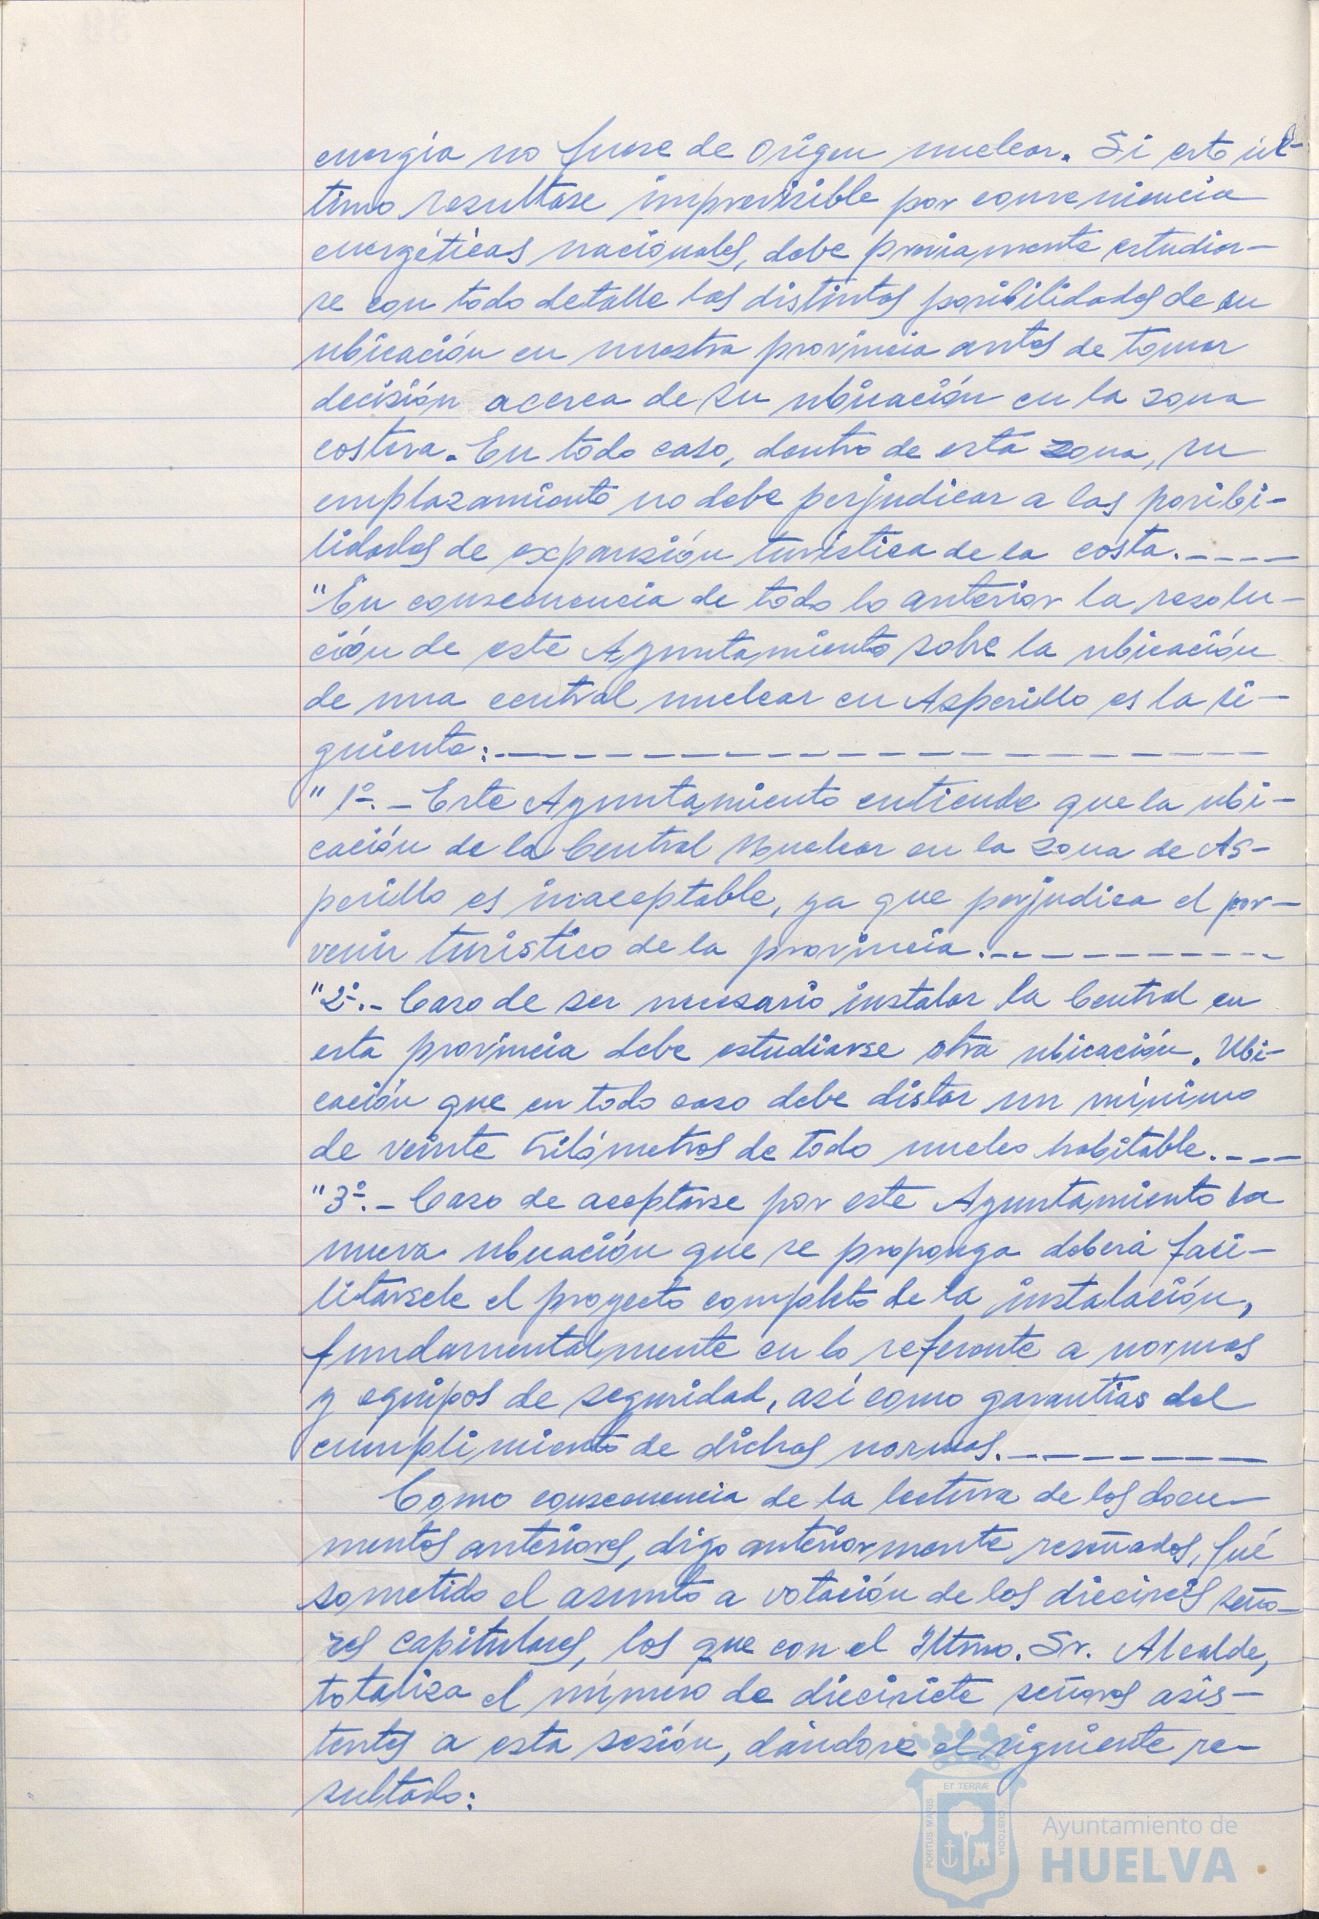 energía no fuese de origen nuclear. Si esto úl-
timo resultase imprevisible por conveniencia
energéticas nacionales, debe previamente estudiar-
se con todo detalle las distintas posibilidades de su
ubicación en nuestra provincia antes de tomar
decisión acerca de su ubicación en la zona
costera. En todo caso, dentro de esta zona, su
emplazamiento no debe perjudicar a las posibi-
lidades de expansión turística de la costa.----
"En consecuencia de todo lo anterior la resolu-
ción de este Ayuntamiento sobre la ubicación
de una central nuclear en Asperillo es la si-
guiente:--------------------
"1º.- Este Ayuntamiento entiende que la ubi-
cación de la Central Nuclear en la zona de As-
perillo es inaceptable, ya que perjudica el por-
venir turístico de la provincia.-----------
"2º.- Caso de ser necesario instalar la Central en
esta provincia debe estudiarse otra ubicación. Ubi-
cación que en todo caso debe distar un mínimo
de veinte kilómetros de todo nucleo habitable.----
"3º.- Caso de aceptarse por este Ayuntamiento la
nueva ubicación que se proponga deberá faci-
litársele el proyecto completo de la instalación,
fundamentalmente en lo referente a normas
y equipos de seguridad, así como garantías del
cumplimiento de dichas normas.---------
Como consecuencia de la lectura de los docu-
mentos anteriores, digo anteriormente reseñados, fué
sometido el asunto a votación de los dieciseis seño-
res capitulares, los que con el Iltmo. Sr. Alcalde,
totaliza el número de diecisiete señores asis-
tentes a esta sesión, dándose el siguiente re-
sultado:
ET TERRÆ
PORTUS MARIS
CUSTODIA
Ayuntamiento de
HUELVA